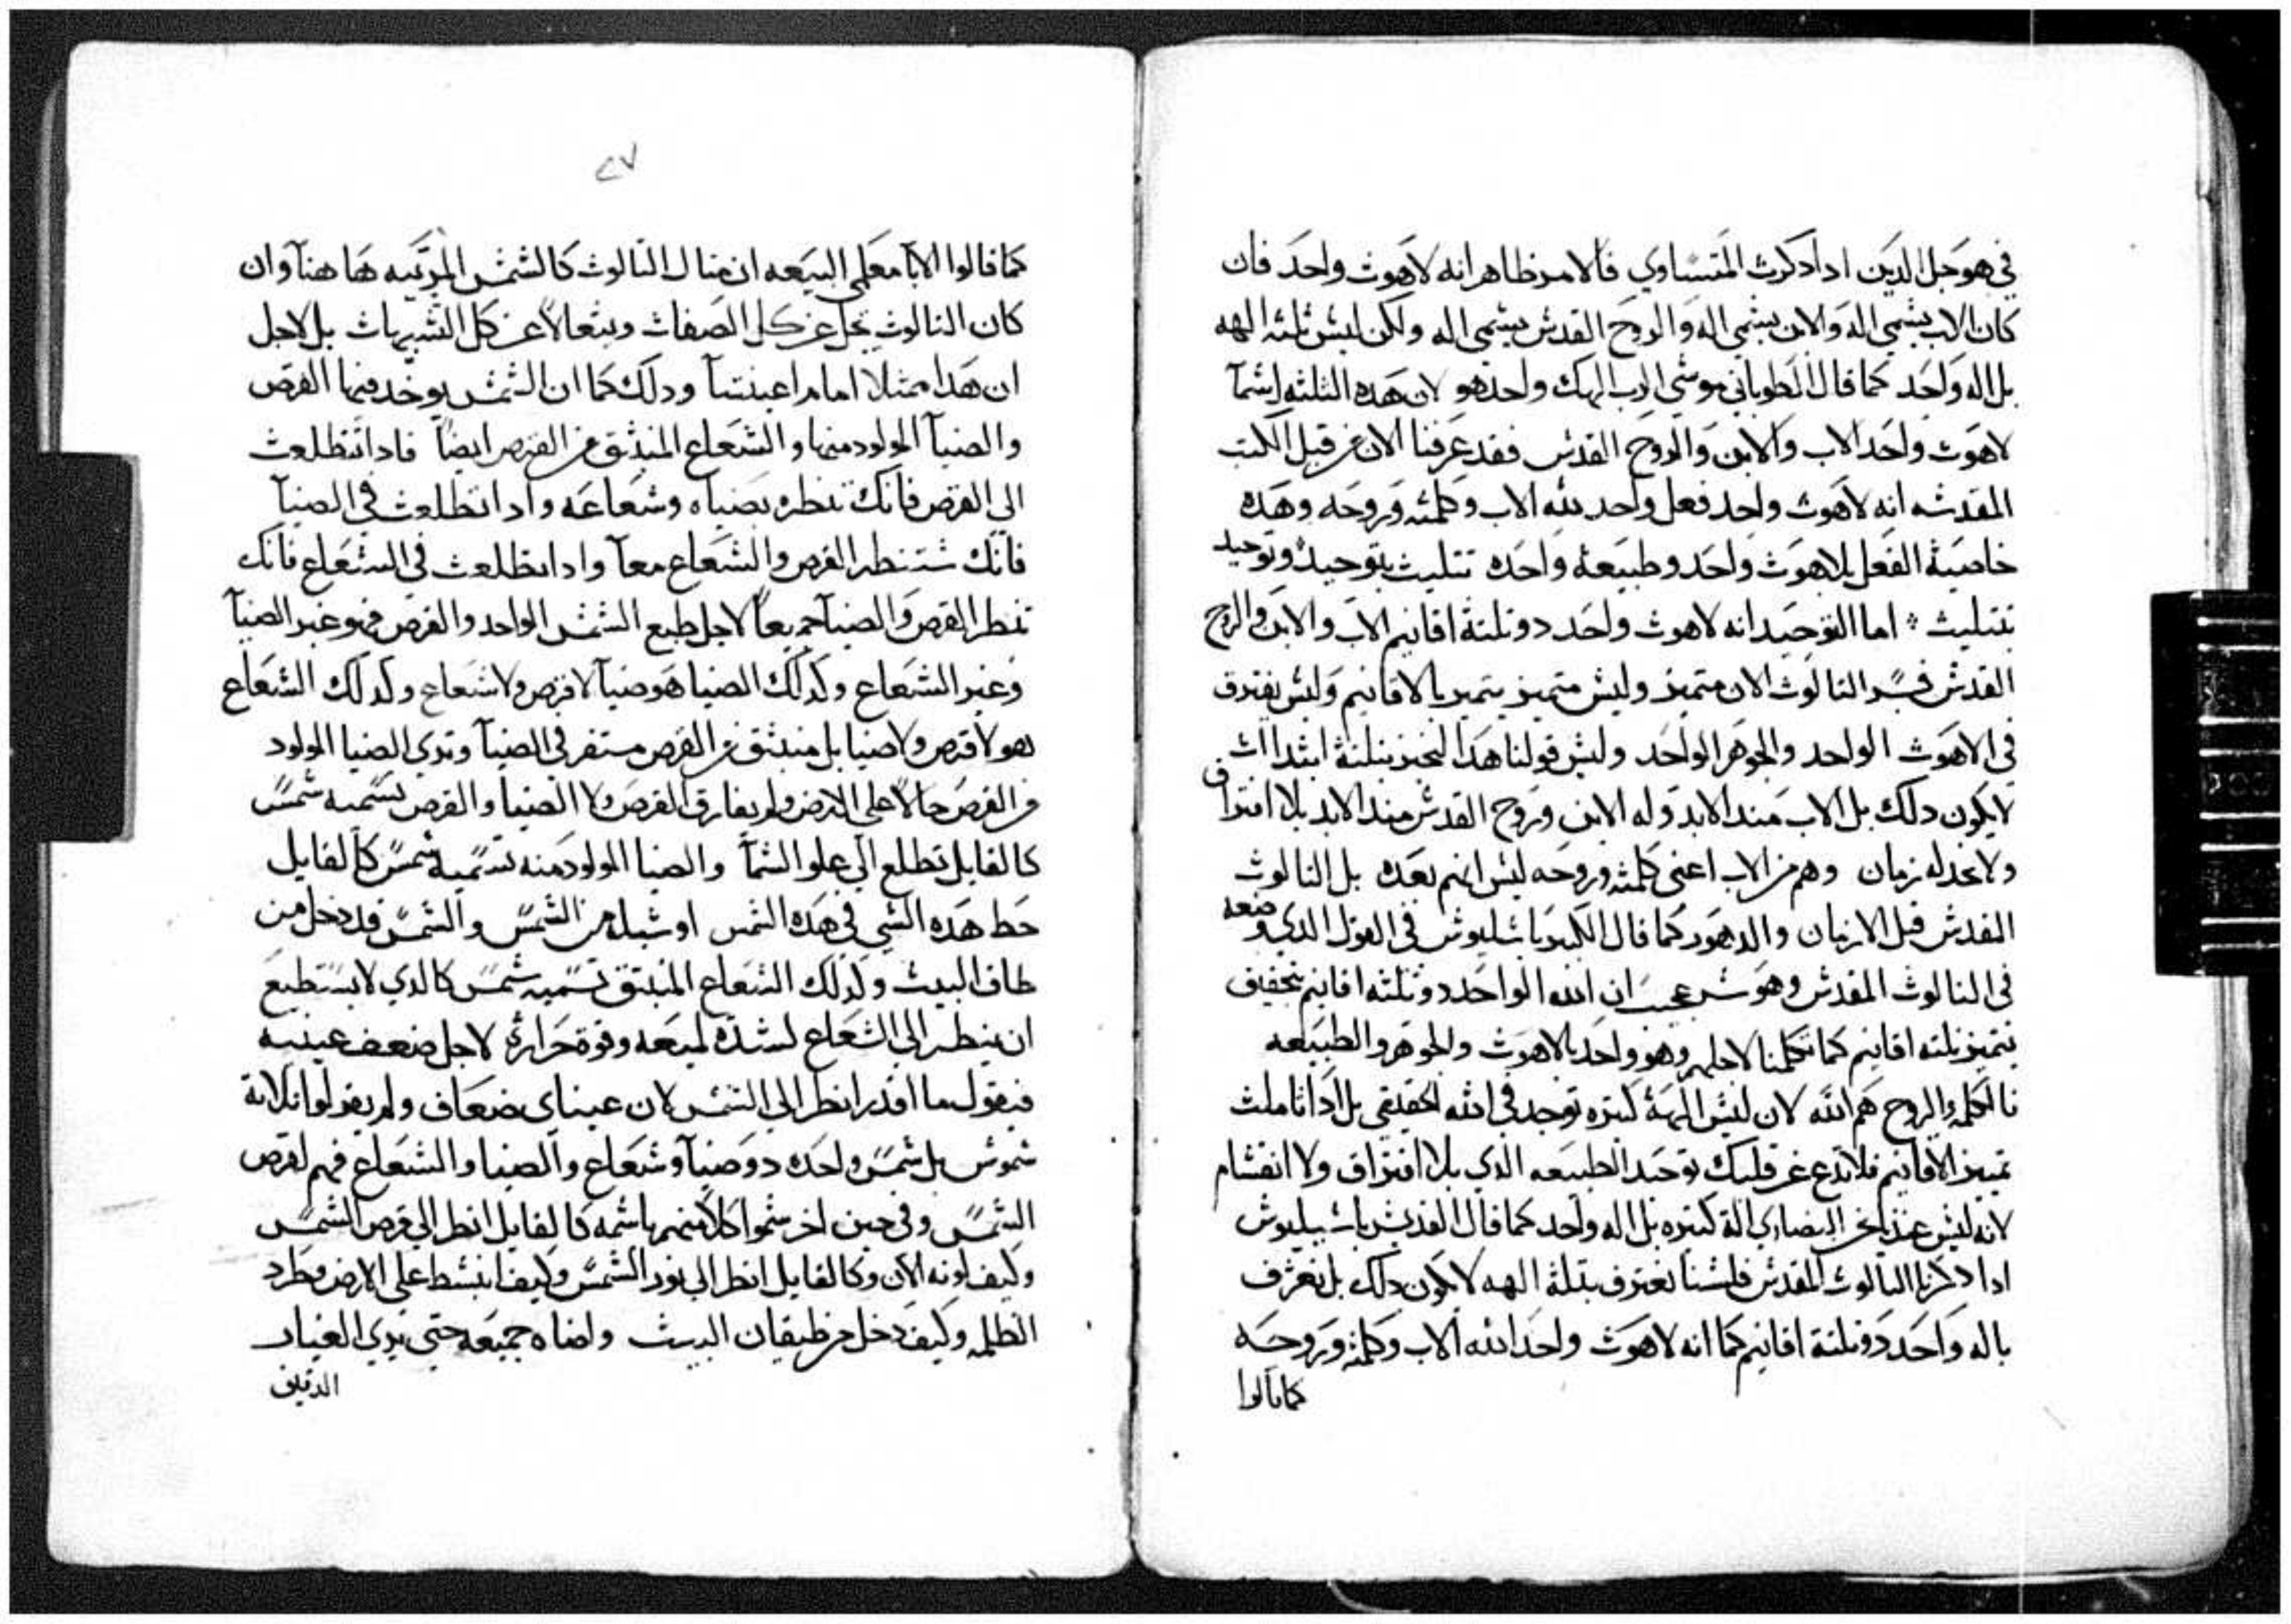 في هو جل الدين ادا دكرت المتساوي فالامر ظاهر انه لاهوت واحد فان
كان الاب يسمي اله والابن يسمي اله والروح القدس يسمي اله ولكن ليس تلته الهه
بل اله واحد كما قال الطوباني موسي الرب الهك واحد هو لان هده التلته اسما
لاهوت واحد الاب والابن والروح القدس فقد عرفنا الان من قبل الكتب
المقدسه انه لاهوت واحد فعل واحد لله الاب وكلمته وروحه وهده
خاصية الفعل للاهوت واحد وطبيعة واحده تتليت بتوحيد وتوحيد
بتتليت اما التوحيد انه لاهوت واحد دو تلتة اقانيم الاب والابن والروح
القدس فسر التالوت الان متميز وليس متميز يتميز بالاقانيم وليس يفترق
في الاهوت الواحد والجوهر الواحد وليس قولنا هدا لنخبر بتلتة ابتداات
لا يكون دلك بل الاب مند الابد وله الابن وروح القدس مند الابد بلا افتراق
ولا عدله زمان وهم من الاب اعني كلمته وروحه ليس انهم بعده بل التالوت
القدس قبل الازمان والدهور كما قال الكبير باسليوس في القول الدي وضعه
في التالوت المقدس وهو سر عجيب ان الله الواحد دو تلته اقانيم بتحقيق
بتميز تلته اقانيم كما تكلمنا لاجلهم وهو واحد بالاهوت والجوهر والطبيعه
فالكلمه والروح هم الله لان ليس الهة كتيره توجد في الله الحقيقي بل ادا تاملت
تميز الاقانيم فلا تدع عن قلبك توحيد الطبيعه الدي بلا افتراق ولا انقسام
لانه ليس عندنا نحن النصاري الهة كتيره بل اله واحد كما قال القديس باسيليوس
ادا دكرنا التالوت المقدس فلسنا نعترف بتلتة الهه لا يكون دلك بل نعترف
باله واحد دو تلتة اقانيم كما انه لاهوت واحد الله الاب وكلمته وروحه
كما قالوا
٢٧
كما قالوا الابا معلمي البيعه ان متال التالوت كالشمس المرتبه ها هنا وان
كان التالوت يجل عن كل الصفات ويتعالا عن كل الشبهات بل لاجل
ان هدا ممتلا امام اعيننا ودلك كما ان الشمس يوخد منها القرص
والضيا المولود منها والشعاع المنبتق من القرص ايضا فادا تطلعت
الي القرص فانك تنظره بضياه وشعاعه وادا تطلعت في الضيا
فانك ستنظر القرص والشعاع معا وادا تطلعت في الشعاع فانك
تنظر القرص والضيا جميعا لاجل طبع الشمس الواحد والقرص فهو غير الضيا
وغير الشعاع وكدلك الضيا هو ضيا لا قرص ولا شعاع وكدلك الشعاع
هو لا قرص ولا ضيا بل منبتق من القرص مستقر في الضيا وتري الضيا المولود
من القرص حالا علي الارض ولم يفارق القرص ولا الضيا والقرص تسميه شمس
كالقايل تطلع الي علو السما والضيا المولود منه تسميه شمس كالقايل
حط هده الشي في هده الشمس او شيله من الشمس والشمس قد دخل من
طاق البيت وكدلك الشعاع المنبتق تسميه شمس كالدي لا يستطيع
ان ينظر الي الشعاع لشدة لميعه وقوة حرارته لاجل ضعف عينيه
فيقول ما اقدر انظر الي الشمس لان عيناي ضعاف ولم يقولوا تلاتة
شموس بل شمس واحده دو ضيا وشعاع والضيا والشعاع فهم لقرص
الشمس وفي حين اخر سموا كلا منهم باسمه كالقايل انظر الي قرص الشمس
وكيف لونه الان وكالقايل انظر الي نور الشمس وكيف انبسط علي الارض وطرد
الظلمه وكيف دخل من طيقان البيت واضاه جميعه حتي تري الغبار
الدقيق